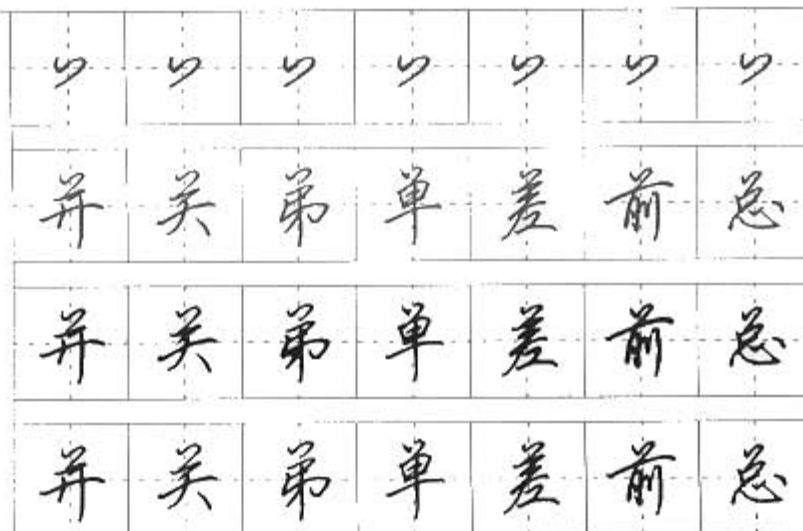 丷 丷 丷 丷 丷 丷 丷
并 关 弟 单 差 前 总
并 关 弟 单 差 前 总
并 关 弟 单 差 前 总